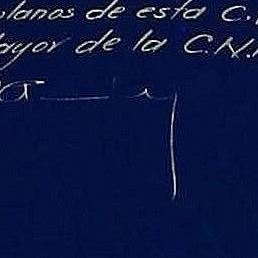 planos de esta C.
Mayor de la C.N.